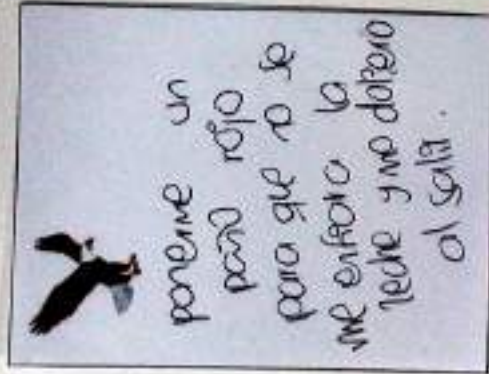 ponerme un
paño rojo
para que no se
me enfriara la
leche y me doliera
al salir.